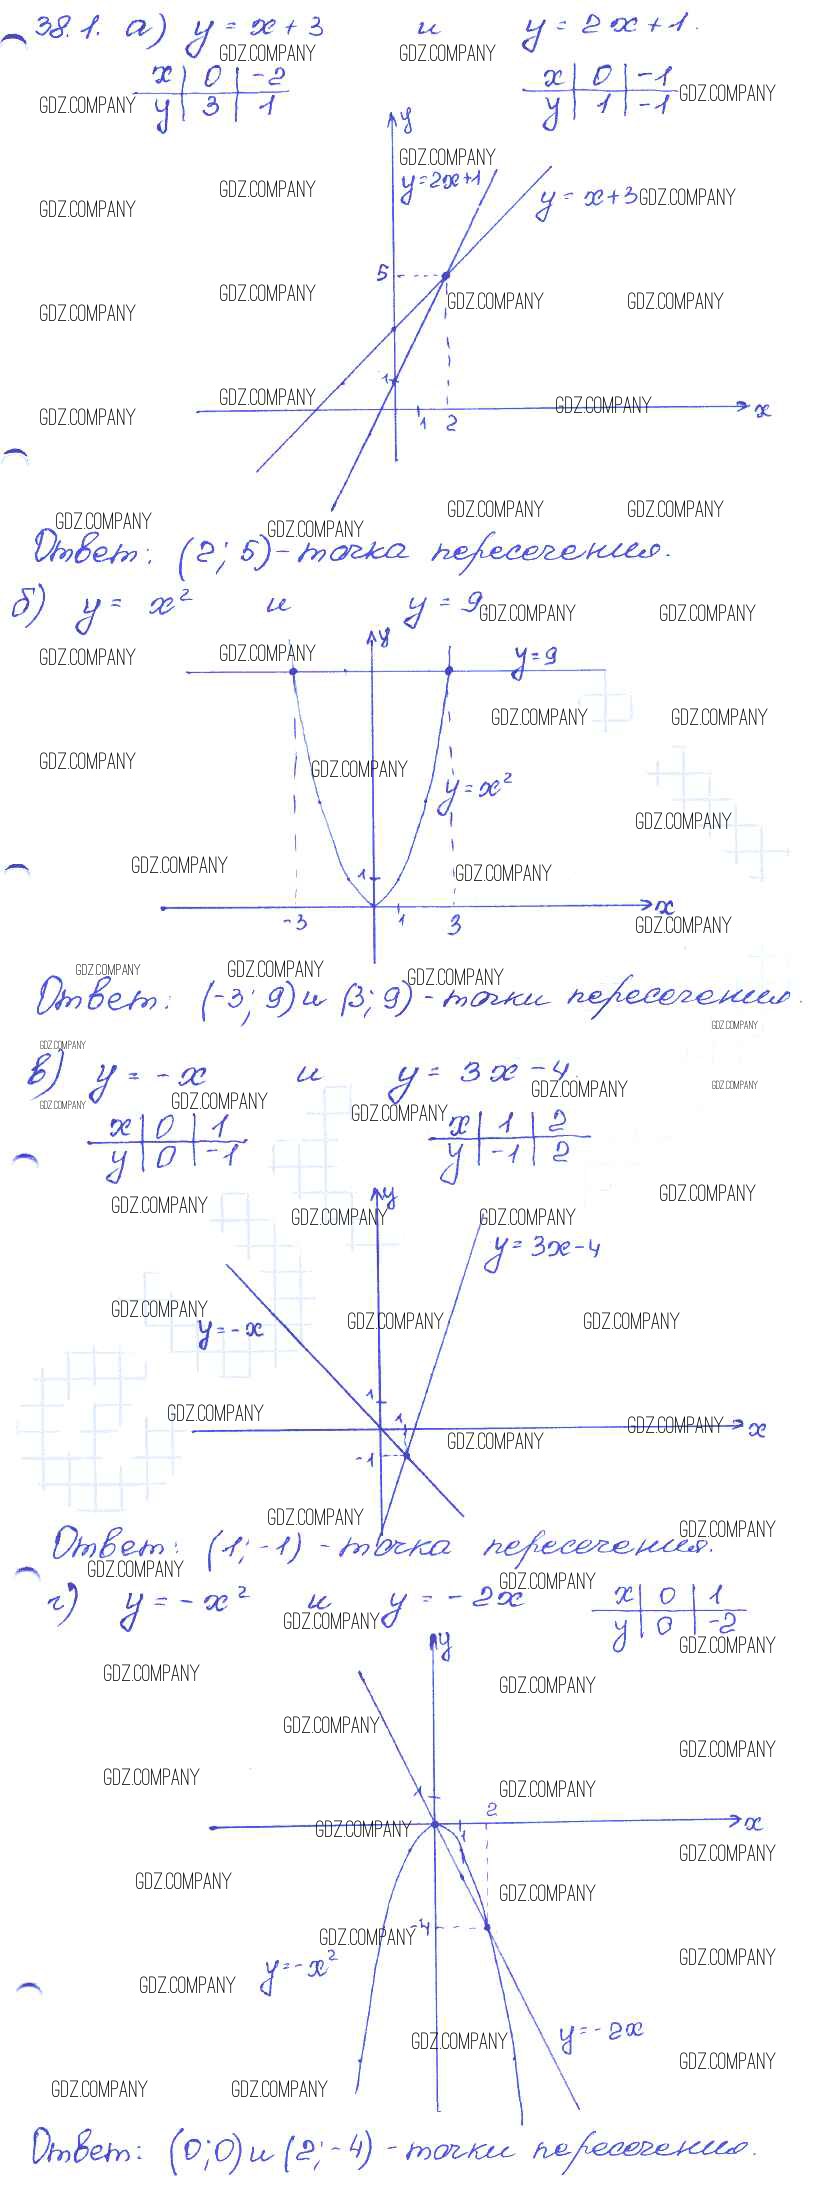 38.1. а) y = x + 3 и y = 2x + 1.
x | 0 | -2
y | 3 | 1
x | 0 | -1
y | 1 | -1
y
y=2x+1
y = x+3
5
1
1 2 x
Ответ: (2; 5) - точка пересечения.
б) y = x² и y = 9
y
y=9
y=x²
1
-3 1 3 x
Ответ: (-3; 9) и (3; 9) - точки пересечения.
в) y = -x и y = 3x - 4.
x | 0 | 1
y | 0 | -1
x | 1 | 2
y | -1 | 2
y
y = 3x-4
y=-x
1
1
x
-1
Ответ: (1; -1) - точка пересечения.
г) y = -x² и y = -2x
x | 0 | 1
y | 0 | -2
y
1
2
1
x
-4
y=-x²
y=-2x
Ответ: (0;0) и (2;-4) - точки пересечения.
GDZ.COMPANY